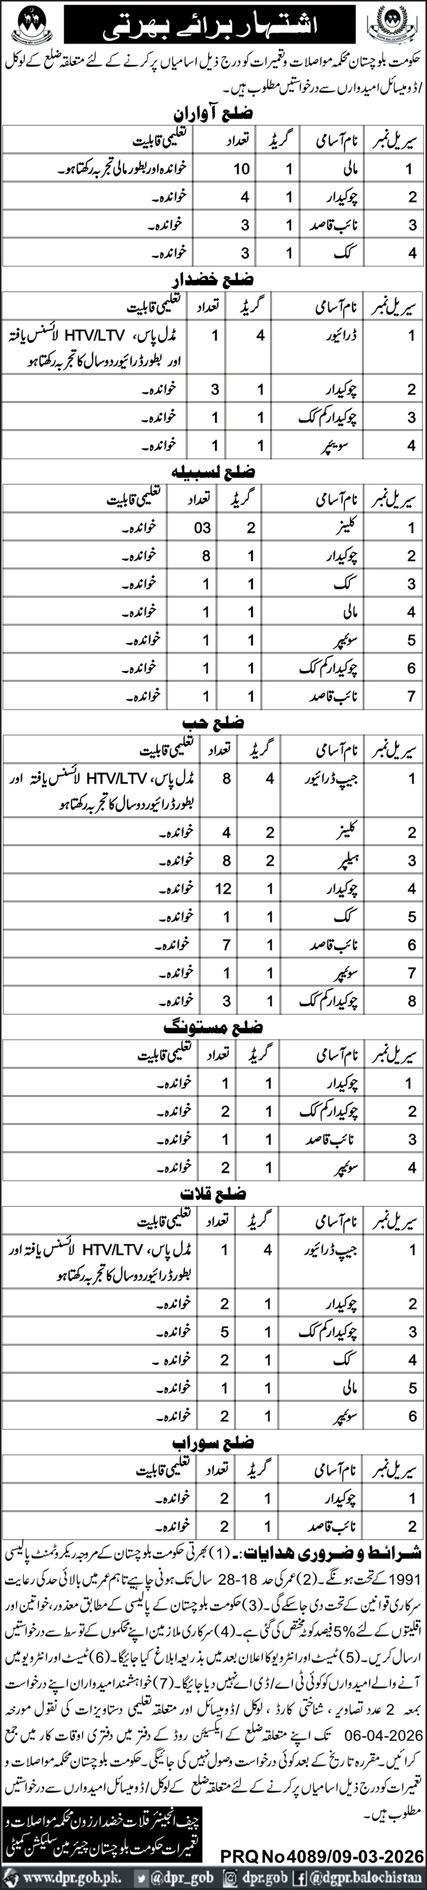 اشتہار برائے بھرتی
حکومت بلوچستان محکمہ مواصلات و تعمیرات کو درج ذیل اسامیاں پر کرنے کے لئے متعلقہ ضلع کے لوکل
/ ڈومیسائل امیدواروں سے درخواستیں مطلوب ہیں۔
ضلع آواران
سیریل نمبر نام آسامی گریڈ تعداد تعلیمی قابلیت
1 مالی 1 10 خواندہ اور بطور مالی تجربہ رکھتا ہو۔
2 چوکیدار 1 4 خواندہ۔
3 نائب قاصد 1 3 خواندہ۔
4 کک 1 3 خواندہ۔
ضلع خضدار
سیریل نمبر نام آسامی گریڈ تعداد تعلیمی قابلیت
1 ڈرائیور 4 1 مڈل پاس، HTV/LTV لائسنس یافتہ
اور بطور ڈرائیور دو سال کا تجربہ رکھتا ہو
2 چوکیدار 1 3 خواندہ۔
3 چوکیدار کم کک 1 1 خواندہ۔
4 سویپر 1 1 خواندہ۔
ضلع لسبیلہ
سیریل نمبر نام آسامی گریڈ تعداد تعلیمی قابلیت
1 کلینر 2 03 خواندہ۔
2 چوکیدار 1 8 خواندہ۔
3 کک 1 1 خواندہ۔
4 مالی 1 1 خواندہ۔
5 سوئیپر 1 1 خواندہ۔
6 چوکیدار کم کک 1 1 خواندہ۔
7 نائب قاصد 1 1 خواندہ۔
ضلع حب
سیریل نمبر نام آسامی گریڈ تعداد تعلیمی قابلیت
1 جیپ ڈرائیور 4 8 مڈل پاس، HTV/LTV لائسنس یافتہ اور
بطور ڈرائیور دو سال کا تجربہ رکھتا ہو
2 کلینر 2 4 خواندہ۔
3 ہیلپر 2 8 خواندہ۔
4 چوکیدار 1 12 خواندہ۔
5 کک 1 1 خواندہ۔
6 نائب قاصد 1 7 خواندہ۔
7 سوئیپر 1 1 خواندہ۔
8 چوکیدار کم کک 1 3 خواندہ۔
ضلع مستونگ
سیریل نمبر نام آسامی گریڈ تعداد تعلیمی قابلیت
1 چوکیدار 1 1 خواندہ۔
2 چوکیدار کم کک 1 2 خواندہ۔
3 نائب قاصد 1 1 خواندہ۔
4 سوئیپر 1 2 خواندہ۔
ضلع قلات
سیریل نمبر نام آسامی گریڈ تعداد تعلیمی قابلیت
1 جیپ ڈرائیور 4 1 مڈل پاس، HTV/LTV لائسنس یافتہ اور
بطور ڈرائیور دو سال کا تجربہ رکھتا ہو
2 چوکیدار 1 2 خواندہ۔
3 چوکیدار کم کک 1 5 خواندہ۔
4 کک 1 2 خواندہ۔
5 مالی 1 1 خواندہ۔
6 سوئیپر 1 2 خواندہ۔
ضلع سوراب
سیریل نمبر نام آسامی گریڈ تعداد تعلیمی قابلیت
1 چوکیدار 1 2 خواندہ۔
2 نائب قاصد 1 2 خواندہ۔
شرائط و ضروری ھدایات:۔ (1) بھرتی حکومت بلوچستان کے مروجہ ریکروٹمنٹ پالیسی
1991 کے تحت ہونگے۔ (2) عمر کی حد 18-28 سال تک ہونی چاہیے تاہم عمر میں بالائی حد کی رعایت
سرکاری قوانین کے تحت دی جا سکے گی۔ (3) حکومت بلوچستان کے پالیسی کے مطابق معذور، خواتین اور
اقلیتوں کے لئے 5% فیصد کوٹہ مختص کی گئی ہے۔ (4) سرکاری ملازمین اپنے محکموں کے توسط سے درخواستیں
ارسال کریں۔ (5) ٹیسٹ اور انٹرویو کا اعلان بعد میں بذریعہ ابلاغ کیا جائیگا۔ (6) ٹیسٹ اور انٹرویو میں
آنے والے امیدواروں کو کوئی ٹی اے / ڈی اے نہیں دیا جائیگا۔ (7) خواہشمند امیدواران اپنے درخواست
بمعہ 2 عدد تصاویر، شناختی کارڈ، لوکل / ڈومیسائل اور متعلقہ تعلیمی دستاویزات کی نقول مورخہ
06-04-2026 تک اپنے متعلقہ ضلع کے ایکسیئن روڈ کے دفتر میں دفتری اوقات کار میں جمع
کرائیں۔ مقررہ تاریخ کے بعد کوئی درخواست وصول نہیں کی جائیگی۔ حکومت بلوچستان محکمہ مواصلات و
تعمیرات کو درج ذیل اسامیاں پر کرنے کے لئے متعلقہ ضلع کے لوکل / ڈومیسائل امیدواروں سے درخواستیں
مطلوب ہیں۔
چیف انجینئر قلات خضدار زون محکمہ مواصلات و
تعمیرات حکومت بلوچستان چیئرمین سلیکشن کمیٹی
PRQ No 4089/09-03-2026
www.dpr.gob.pk. @dpr_gob @dpr.gob @dgpr.balochistan